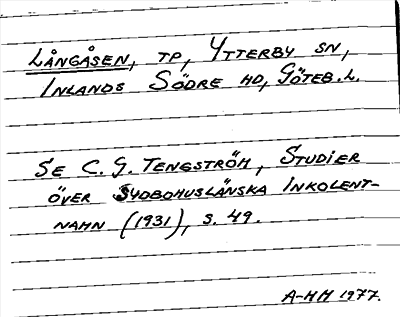 LÅNGÅSEN, TP, YTTERBY SN,
INLANDS SÖDRE HD, GÖTEB.L.
SE C. G. TENGSTRÖM, STUDIER
ÖVER SYDBOHUSLÄNSKA INKOLENT-
NAHN (1931), S. 49.
A-HH 1977.